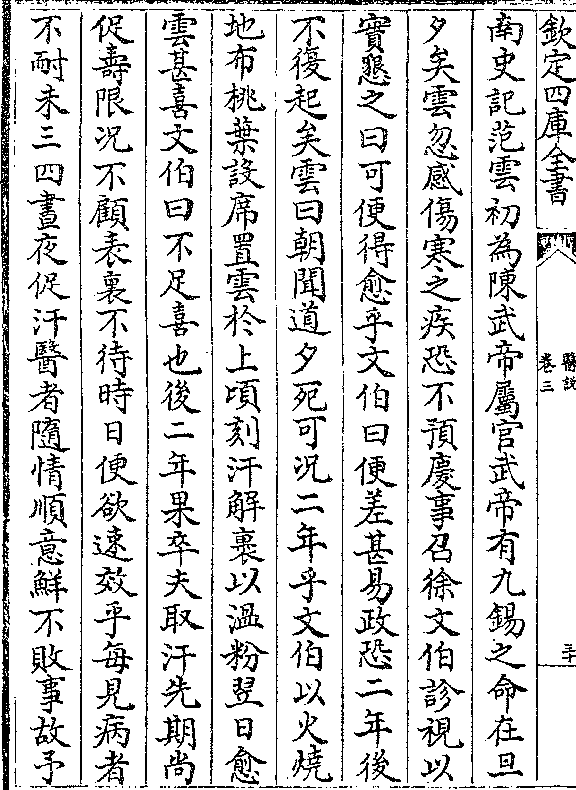 欽定四庫全書
醫説
卷三
三十
南史記范雲初為陳武帝屬官武帝有九錫之命在旦
夕矣雲忽感傷寒之疾恐不預慶事召徐文伯診視以
實懇之曰可便得愈乎文伯曰便差甚易政恐二年後
不復起矣雲曰朝聞道夕死可况二年乎文伯以火燒
地布桃葉設席置雲於上頃刻汗解裹以温粉翌日愈
雲甚喜文伯曰不足喜也後二年果卒夫取汗先期尚
促壽限况不顧表裏不待時日便欲速效乎每見病者
不耐未三四晝夜促汗醫者隨情順意鮮不敗事故予